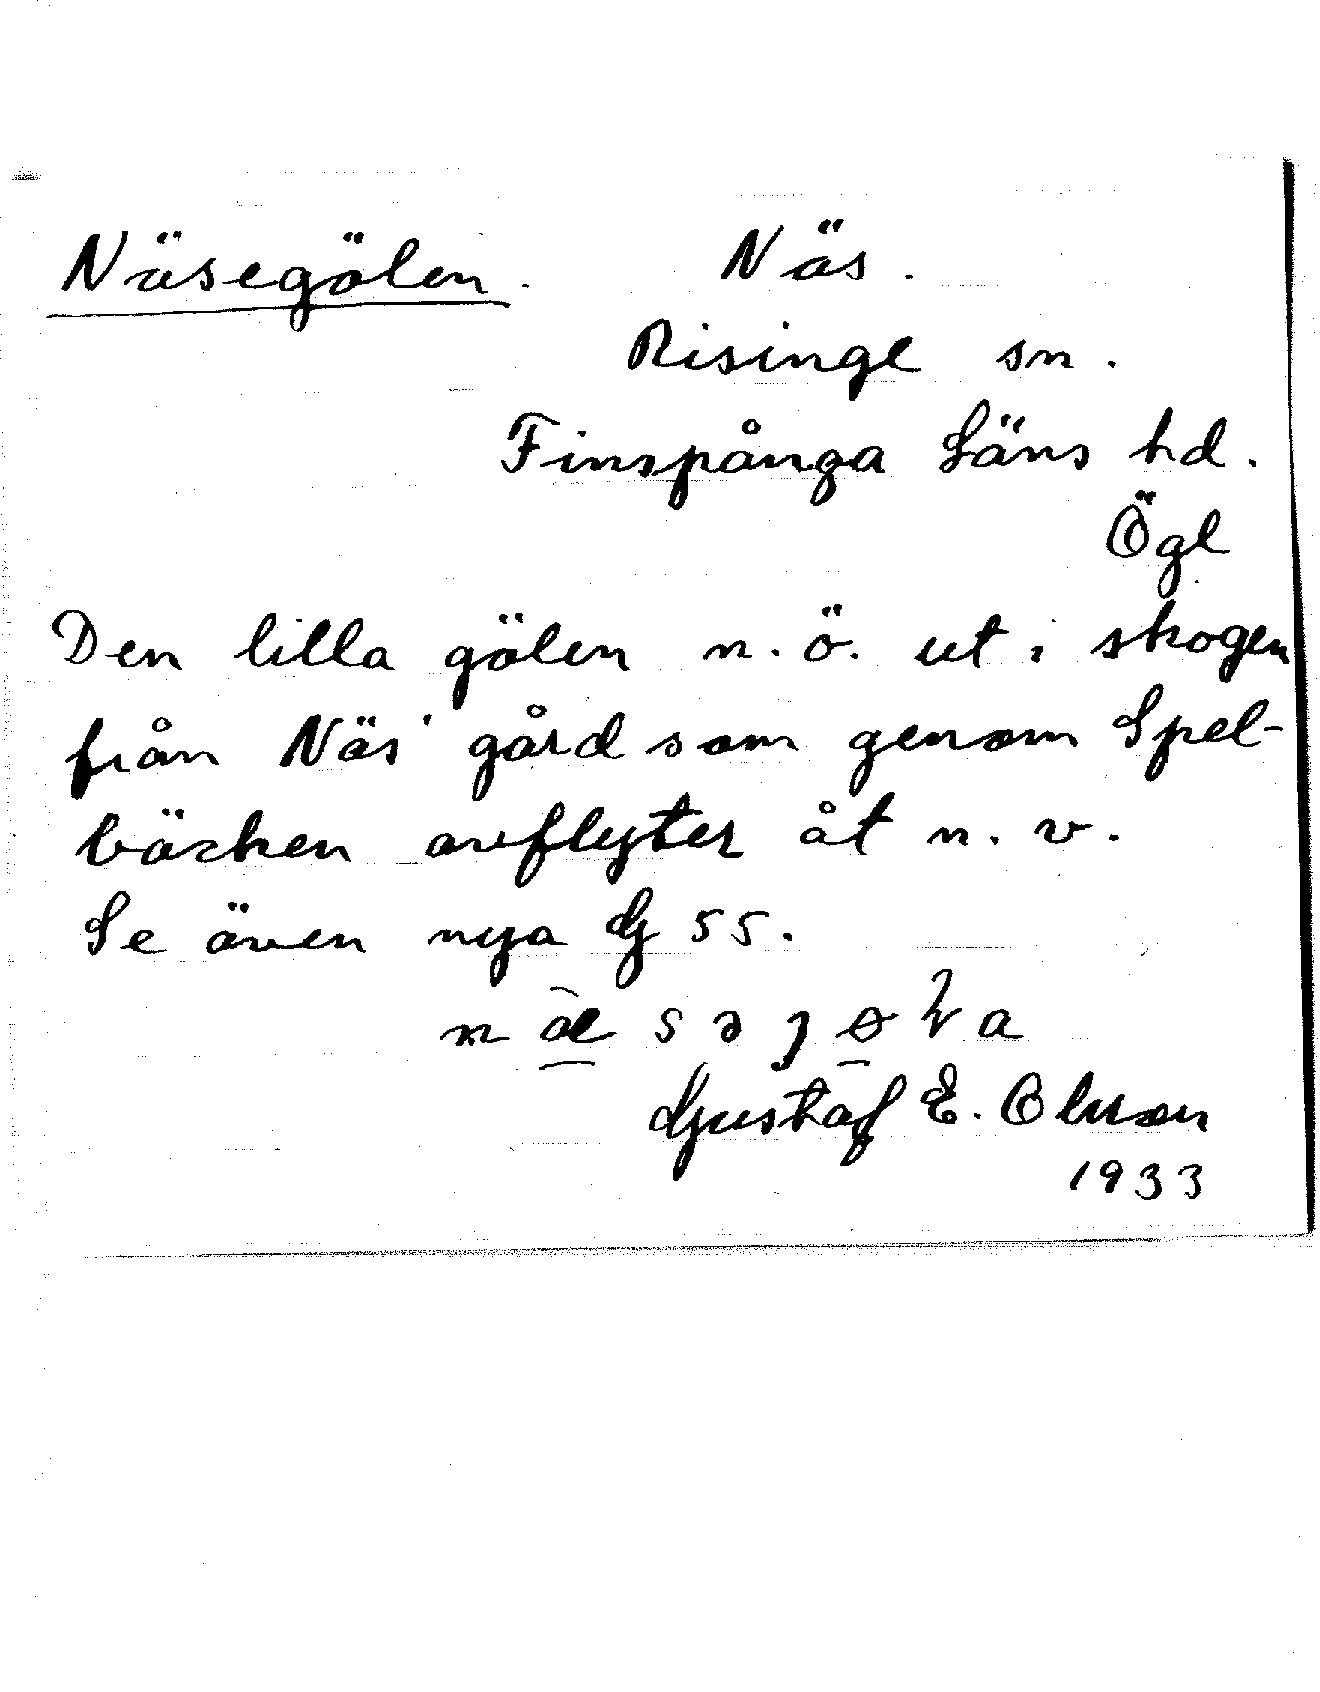 Näsegölen. Näs.
Risinge sn.
Finspånga Läns hd.
Ögl
Den lilla gölen n.ö. ut i skogen
från Näs' gård som genom Spel-
bäcken avflyter åt n.v.
Se även nya G 55.
Gustaf E. Olsson
1933